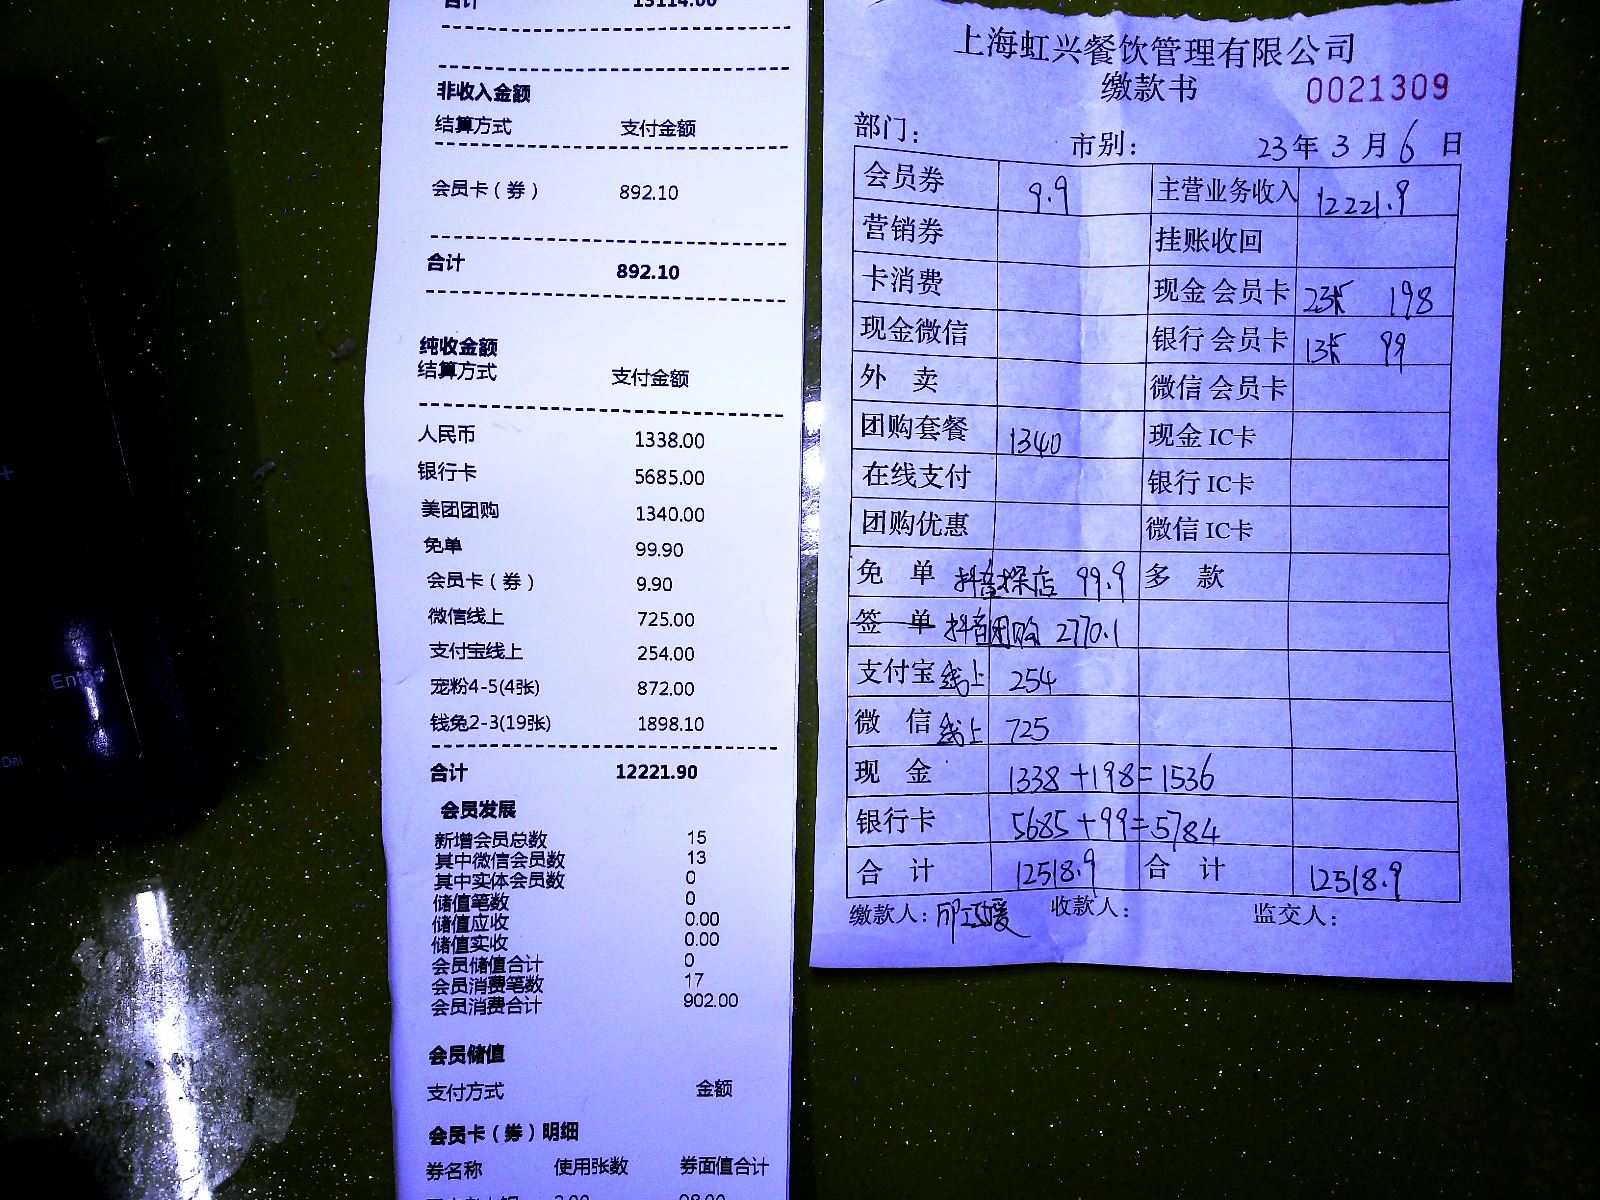 合计 13114.00
非收入金额
结算方式 支付金额
会员卡（券） 892.10
合计 892.10
纯收金额
结算方式 支付金额
人民币 1338.00
银行卡 5685.00
美团团购 1340.00
免单 99.90
会员卡（券） 9.90
微信线上 725.00
支付宝线上 254.00
宠粉4-5(4张) 872.00
钱兔2-3(19张) 1898.10
合计 12221.90
会员发展
新增会员总数 15
其中微信会员数 13
其中实体会员数 0
储值笔数 0
储值应收 0.00
储值实收 0.00
会员储值合计 0
会员消费笔数 17
会员消费合计 902.00
会员储值
支付方式 金额
会员卡（券）明细
券名称 使用张数 券面值合计
上海虹兴餐饮管理有限公司
缴款书 0021309
部门： 市别： 23年3月6日
会员券 9.9 主营业务收入 12221.9
营销券 挂账收回
卡消费 现金 会员卡 2张 198
现金微信 银行 会员卡 1张 99
外 卖 微信 会员卡
团购套餐 1340 现金 IC卡
在线支付 银行 IC卡
团购优惠 微信 IC卡
免 单 抖音探店 99.9 多 款
签 单 抖音团购 2770.1
支付宝线上 254
微 信线上 725
现 金 1338+198=1536
银行卡 5685+99=5784
合 计 12518.9 合 计 12518.9
缴款人： 收款人： 监交人：
Enter
Del
+